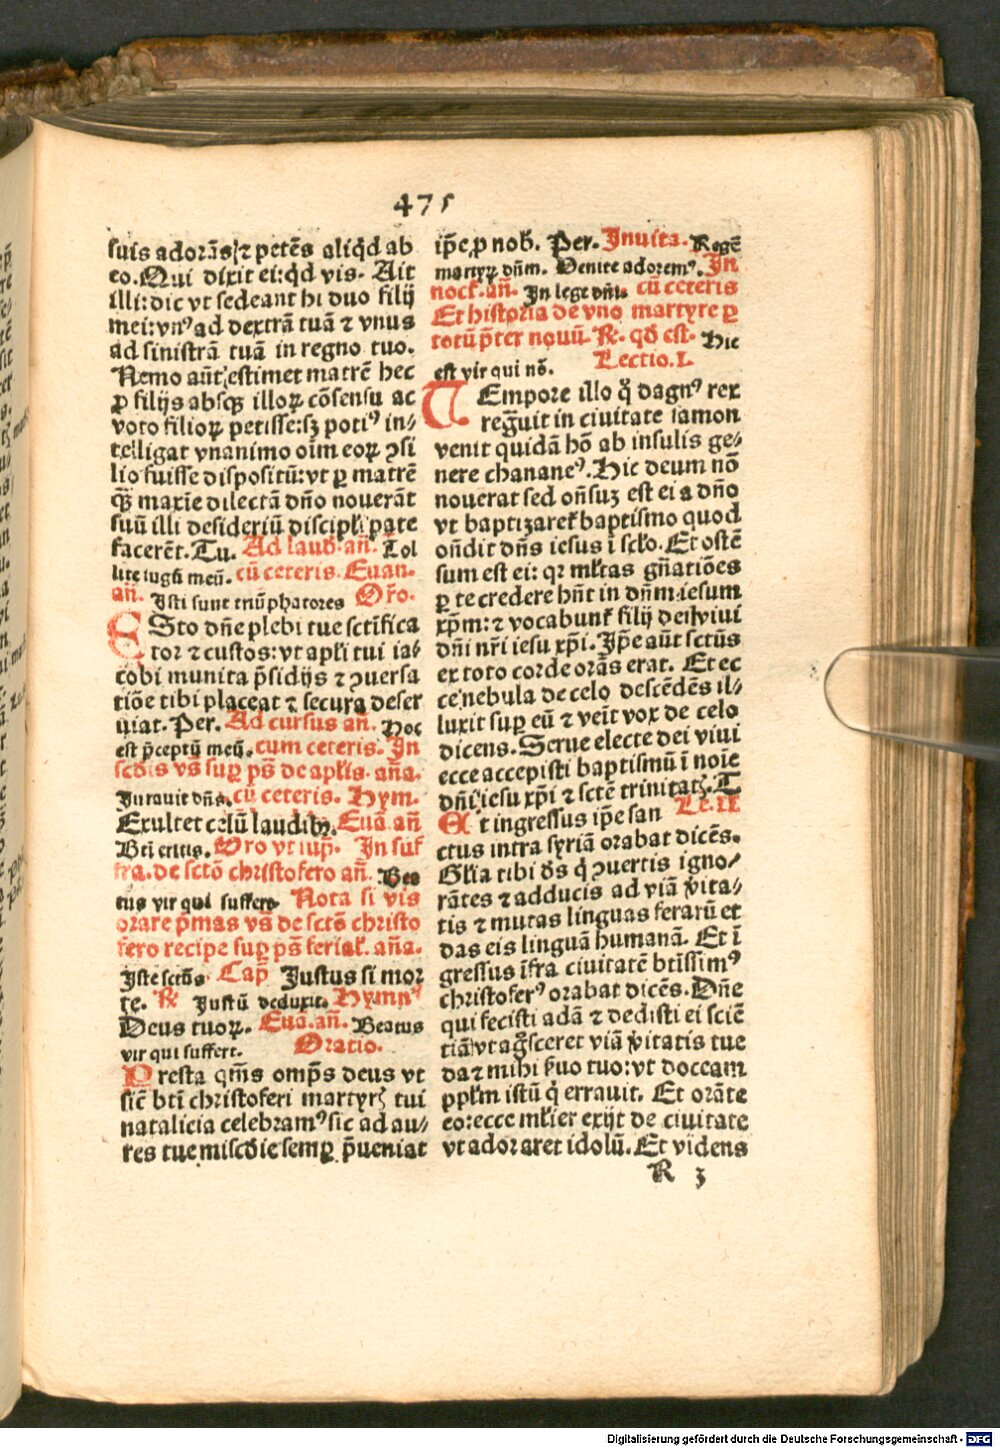 475
suis adorās ⁊ petēs aliq̄d ab
eo. Qui dixit ei: qd vis. Ait
illi: dic vt sedeant hi duo filij
mei: vnꝰ ad dextrā tuā ⁊ vnus
ad sinistrā tuā in regno tuo.
Nemo aūt estimet matrē hec
ꝓ filijs absqꝫ illoꝝ cōsensu ac
voto filioꝝ petisse: sꝫ potiꝰ in⸗
telligat vnanimo oīm eoꝝ ꝯsi
lio fuisse dispositū: vt ꝑ matrē
quā maxīe dilectā dño nouerāt
suū illi desideriū discipl̄i pate
facerēt. Tu. Ad laud̄. añ. Tol
lite iugū meū. cū ceteris. Euan.
añ. Isti sunt triūphatores Or̄o.
ESto dñe plebi tue sctīfica
tor ⁊ custos: vt apl̄i tui ia⸗
cobi munita p̄sidijs ⁊ ꝯuersa
tiōe tibi placeat ⁊ secura deser
uiat. Per. Ad cursus añ. Hoc
est p̄ceptū meū. cum ceteris. In
scd̄is vs̄ suꝑ ps̄ de apl̄is. aña.
Iurauit dñs. cū ceteris. Hym.
Exultet celū laudibꝫ. Euā. añ
Bti eritis. Oro vt sup̄. In suf
fra. de sctō christofero añ. Bea
tus vir qui suffert. Nota si vis
orare p̄mas vs̄ de sctō christo
fero recipe suꝑ ps̄ ferial̄. aña.
Iste sctūs. Cap̄ Iustus si mor
te. ℟ Iustū deduxit. Hymnꝰ
Deus tuoꝝ. Euā. añ. Beatus
vir qui suffert. Oratio.
PResta qm̄s omp̄s deus vt
sic̄ bti christoferi martyrꝭ tui
natalicia celebramꝰ sic ad au⸗
res tue misc̄d̄ie semꝑ p̄ueniat
ip̄e ꝓ nob̄. Per. Inuita. Regē
martyrꝝ dñm. Venite adoremꝰ. In
noct̄. añ. In lege dñi. cū ceteris
Et historia de vno martyre ꝑ
totū p̄ter nouū ℟. qd̄ est. Hic
est vir qui nō. Lectio. I.
TEmpore illo q̄ dagnꝰ rex
regnuit in ciuitate samon
venit quidā hō ab insulis ge⸗
nere chananeꝰ. Hic deum nō
nouerat sed oñsuꝫ est ei a dño
vt baptizaret̄ baptismo quod
oñdit dñs iesus ī scl̄o. Et ostē
sum est ei: qꝛ ml̄tas gñatiōes
ꝑ te credere hñt in dñm iesum
xp̄m: ⁊ vocabunt̄ filij dei viui
dñi nr̄i iesu xp̄i. Ip̄e aūt sctūs
ex toto corde orās erat. Et ec
ce nebula de celo descēdēs il⸗
luxit suꝑ eū ⁊ veīt vox de celo
dicens. Serue electe dei viui
ecce accepisti baptismū ī noīe
dñi iesu xp̄i ⁊ sctē trinitatꝭ. T
Et ingressus ip̄e san Le. II
ctus intra syriā orabat dicēs.
Gl̄ia tibi ds̄ q̄ ꝯuertis igno⸗
rātes ⁊ adducis ad viā v̄ita⸗
tis ⁊ mutas linguas ferarū et
das eis linguā humanā. Et ī
gressus īfra ciuitatē btīssimꝰ
christoferꝰ orabat dicēs. Dñe
qui fecisti adā ⁊ dedisti ei sciē
tiā vt ag̃sceret viā v̄itatis tue
da ⁊ mihi s̄uo tuo: vt doceam
ppl̄m istū q̄ errauit. Et orāte
eo: ecce ml̄ier exijt de ciuitate
vt adoraret idolū. Et videns
R 3
Digitalisierung gefördert durch die Deutsche Forschungsgemeinschaft - DFG